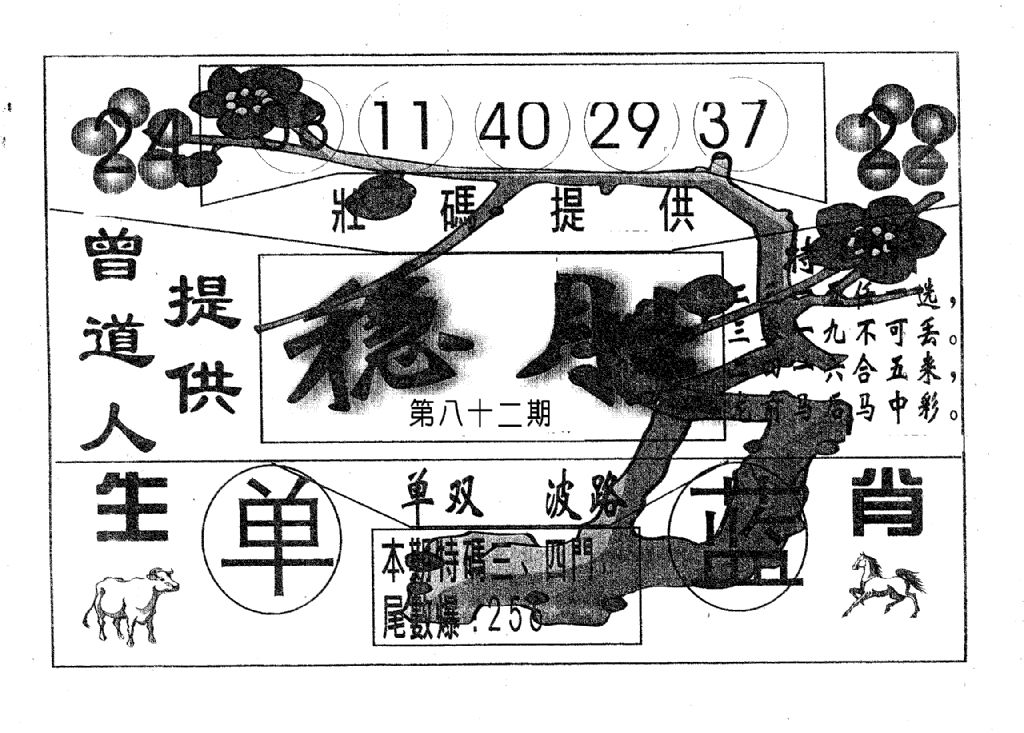 24 11 40 29 37 22
壯碼提供
曾道人
提供
穩胜
第八十二期
选，
三 一九不可丢。
一六合五来，
马后马中彩。
生
肖
单双 波路
单
蓝
本期特碼三、四門.
尾數爆:256